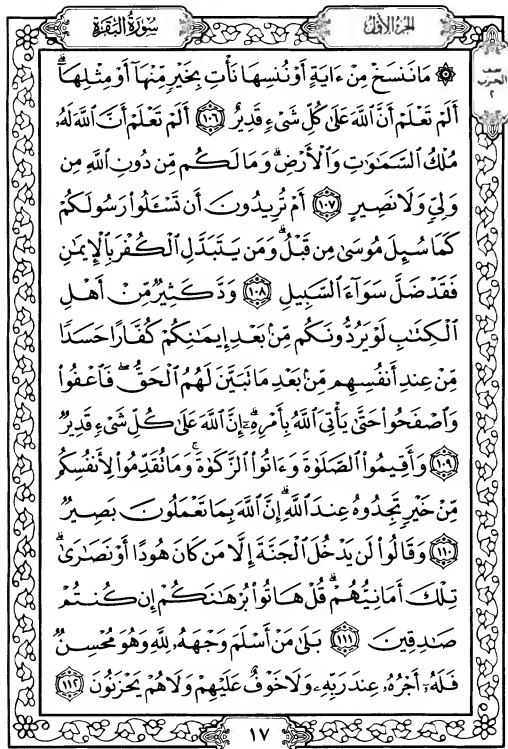 سُورَةُ البَقَرَةِ الجُزْءُ الأَوَّلُ
نصف
الحزب
٢
۞ مَا نَنسَخْ مِنْ ءَايَةٍ أَوْ نُنسِهَا نَأْتِ بِخَيْرٍ مِّنْهَآ أَوْ مِثْلِهَآۗ
أَلَمْ تَعْلَمْ أَنَّ ٱللَّهَ عَلَىٰ كُلِّ شَىْءٍ قَدِيرٌ ١٠٦ أَلَمْ تَعْلَمْ أَنَّ ٱللَّهَ لَهُۥ
مُلْكُ ٱلسَّمَٰوَٰتِ وَٱلْأَرْضِۗ وَمَا لَكُم مِّن دُونِ ٱللَّهِ مِن
وَلِىٍّ وَلَا نَصِيرٍ ١٠٧ أَمْ تُرِيدُونَ أَن تَسْـَٔلُوا۟ رَسُولَكُمْ
كَمَا سُئِلَ مُوسَىٰ مِن قَبْلُۗ وَمَن يَتَبَدَّلِ ٱلْكُفْرَ بِٱلْإِيمَٰنِ
فَقَدْ ضَلَّ سَوَآءَ ٱلسَّبِيلِ ١٠٨ وَدَّ كَثِيرٌ مِّنْ أَهْلِ
ٱلْكِتَٰبِ لَوْ يَرُدُّونَكُم مِّنۢ بَعْدِ إِيمَٰنِكُمْ كُفَّارًا حَسَدًا
مِّنْ عِندِ أَنفُسِهِم مِّنۢ بَعْدِ مَا تَبَيَّنَ لَهُمُ ٱلْحَقُّۖ فَٱعْفُوا۟
وَٱصْفَحُوا۟ حَتَّىٰ يَأْتِىَ ٱللَّهُ بِأَمْرِهِۦٓۗ إِنَّ ٱللَّهَ عَلَىٰ كُلِّ شَىْءٍ قَدِيرٌ
١٠٩ وَأَقِيمُوا۟ ٱلصَّلَوٰةَ وَءَاتُوا۟ ٱلزَّكَوٰةَۚ وَمَا تُقَدِّمُوا۟ لِأَنفُسِكُم
مِّنْ خَيْرٍ تَجِدُوهُ عِندَ ٱللَّهِۗ إِنَّ ٱللَّهَ بِمَا تَعْمَلُونَ بَصِيرٌ
١١٠ وَقَالُوا۟ لَن يَدْخُلَ ٱلْجَنَّةَ إِلَّا مَن كَانَ هُودًا أَوْ نَصَٰرَىٰۗ
تِلْكَ أَمَانِيُّهُمْۗ قُلْ هَاتُوا۟ بُرْهَٰنَكُمْ إِن كُنتُمْ
صَٰدِقِينَ ١١١ بَلَىٰ مَنْ أَسْلَمَ وَجْهَهُۥ لِلَّهِ وَهُوَ مُحْسِنٌ
فَلَهُۥٓ أَجْرُهُۥ عِندَ رَبِّهِۦ وَلَا خَوْفٌ عَلَيْهِمْ وَلَا هُمْ يَحْزَنُونَ ١١٢
١٧